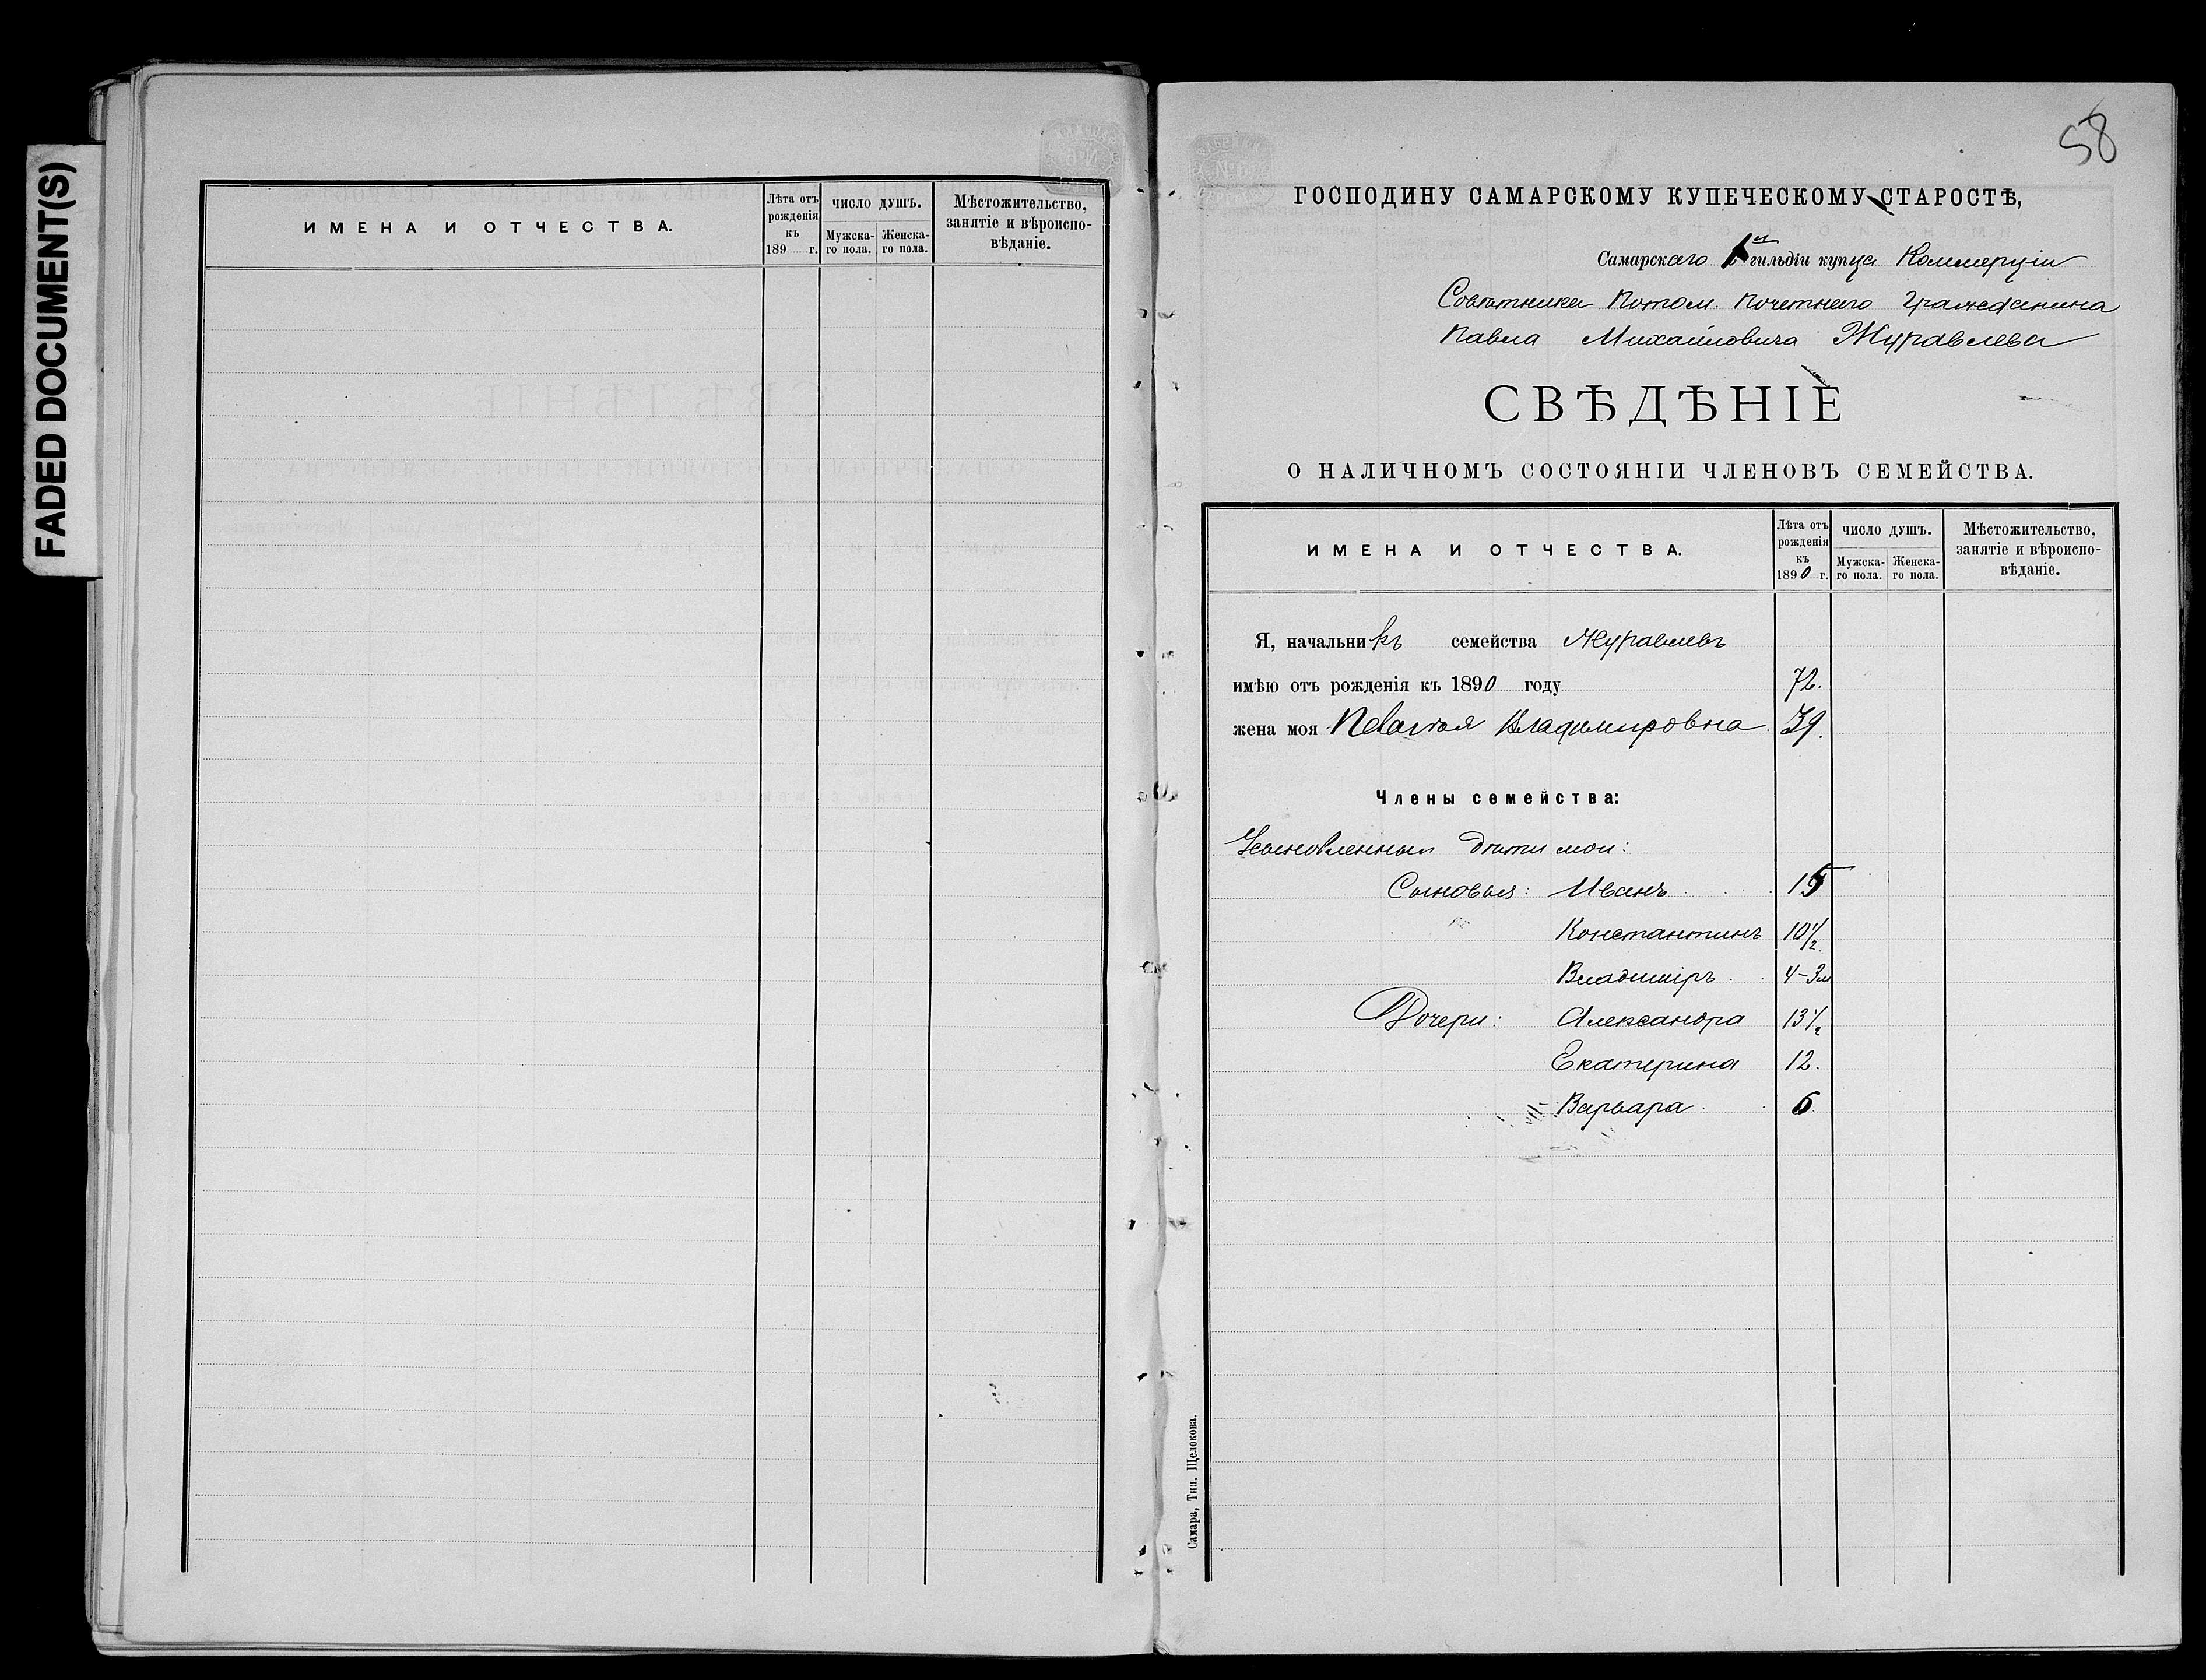 FADED DOCUMENT(S)
ИМЕНА И ОТЧЕСТВА.
Лѣта отъ рожденія къ 189 г.
ЧИСЛО ДУШЪ.
Мужска-го пола.
Женска-го пола.
Мѣстожительство, занятіе и вѣроиспо-вѣданіе.
58
ГОСПОДИНУ САМАРСКОМУ КУПЕЧЕСКОМУ СТАРОСТѢ,
Самарскаго 1й гильдіи купца Коммерціи
Совѣтника Потом. Почетнаго Гражданина
Павла Михайловича Журавлева
СВѢДѢНІЕ
О НАЛИЧНОМЪ СОСТОЯНІИ ЧЛЕНОВЪ СЕМЕЙСТВА.
ИМЕНА И ОТЧЕСТВА.
Лѣта отъ рожденія къ 1890 г.
ЧИСЛО ДУШЪ.
Мужска-го пола.
Женска-го пола.
Мѣстожительство, занятіе и вѣроиспо-вѣданіе.
Я, начальникъ семейства Журавлевъ
имѣю отъ рожденія къ 1890 году 72.
жена моя Владимировна 39.
Члены семейства:
Усыновленныя дѣти мои:
Сыновья: Иванъ 15
Константинъ 10 1/2
Владиміръ 4-3м
Дочери: Александра 13 1/2
Екатерина 12.
Варвара 6.
Самара, Тип. Щелокова.